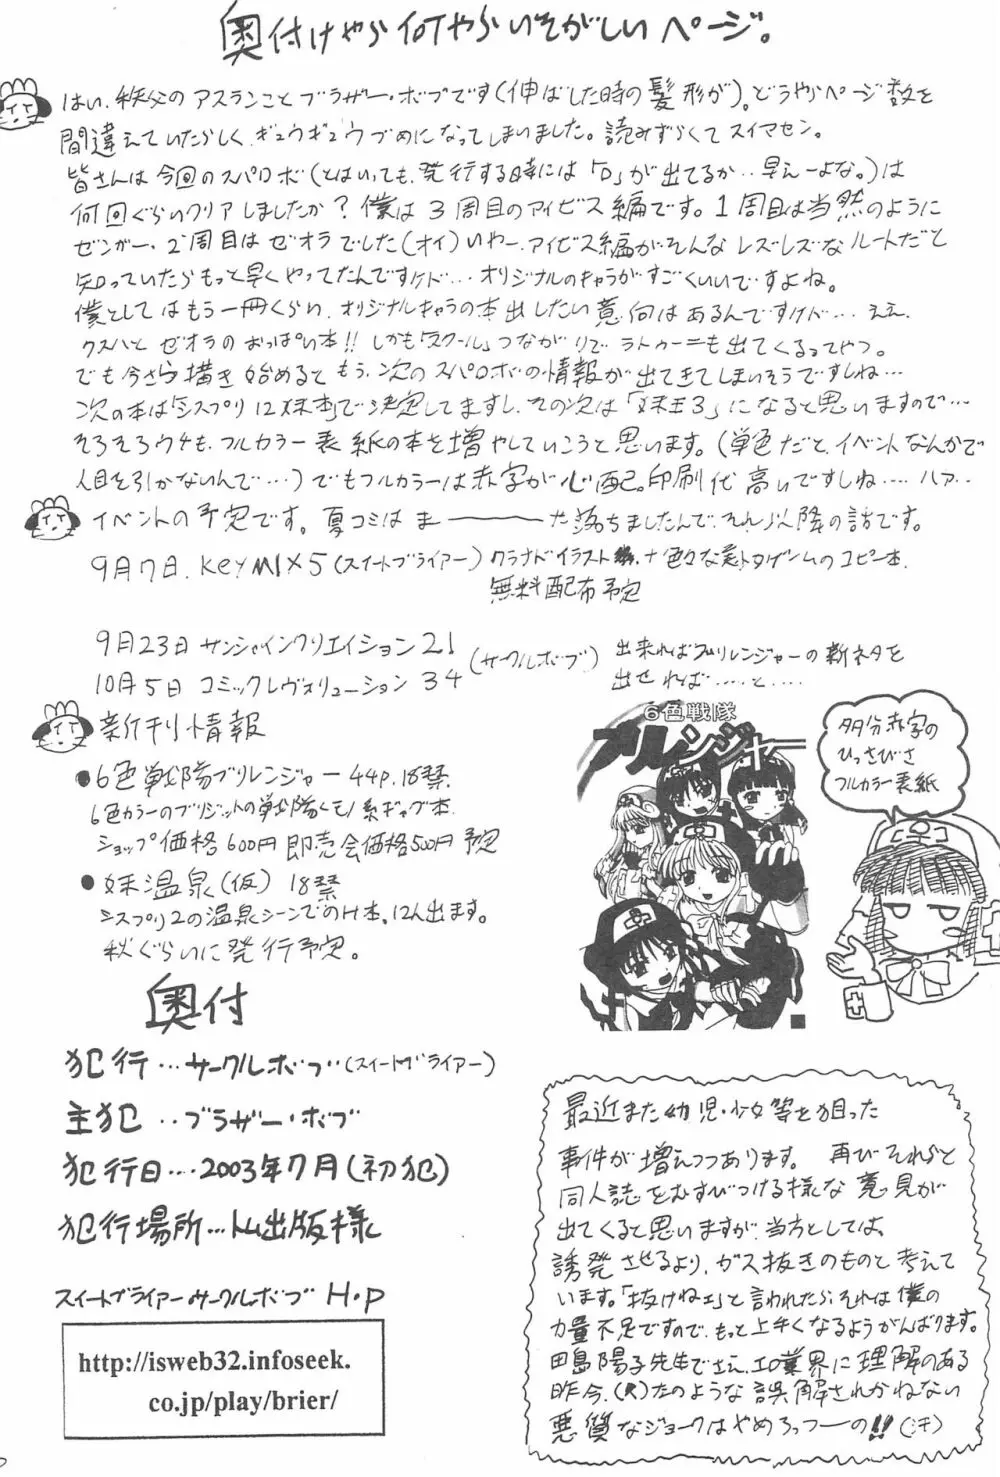 奥付けやら何やらいそがしいページ。
はい、秩父のアスランことブラザー・ボブです(伸ばした時の髪形が)。どうやらページ数を
間違えていたらしく、ギュウギュウづめになってしまいました。読みずらくてスイマセン。
皆さんは今回のスパロボ(とはいっても、発行する時には「D」が出てるか‥早えーよな。)は
何回ぐらいクリアしましたか?僕は3周目のアイビス編です。1周目は当然のように
ゼンガー、2周目はゼオラでした(オイ)いやー、アイビス編がそんなレズレズなルートだと
知っていたらもっと早くやってたんですけド… オリジナルのキャラがすごくいいですよね。
僕としてはもう一冊くらい、オリジナルキャラの本出したい意向はあるんですけド… ええ、
クスハとゼオラのおっぱい本!! しかも「スクール」つながりでラトゥーニも出てくるってやつ。
でも今さら描き始めるともう、次のスパロボの情報が出てきてしまいそうですしね…
次の本は「シスプリ12妹本」で決定してますし、その次は「妹王3」になると思いますので…
そろそろウチも、フルカラー表紙の本を増やしていこうと思います。(単色だと、イベントなんかで
人目を引かないんで…)でもフルカラーは赤字が心配。印刷代高いですしね…. ハァ‥
イベントの予定です。夏コミはま―――た落ちましたんで、それ以降の話です。
9月7日、KeyMIX5(スイートブライアー)
クラナドイラスト集、+色々な美少女ゲームのコピー本、
無料配布予定
9月23日 サンシャインクリエイション21
10月5日 コミックレヴォリューション34
(サークルボブ)
出来ればブリレンジャーの新ネタを
出せれば……と……
新刊情報
●6色戦隊ブリレンジャー 44p.18禁
6色カラーのブリジットの戦隊モノ系ギャグ本、
ショップ価格600円 即売会価格500円 予定
●妹温泉(仮) 18禁
シスプリ2の温泉シーンでのH本。12人出ます。
秋ぐらいに発行予定。
6色戦隊
ブリレンジャー
多分赤字の
ひっさびさ
フルカラー表紙
奥付
犯行…サークルボブ(スイートブライアー)
主犯‥ブラザー・ボブ
犯行日…2003年7月(初犯)
犯行場所…トム出版様
スイートブライアーサークルボブ H・P
http://isweb32.infoseek.
co.jp/play/brier/
最近また幼児・少女等を狙った
事件が増えつつあります。 再びそれらと
同人誌をむすびつける様な意見が
出てくると思いますが、当方としては、
誘発させるより、ガス抜きのものと考えて
います。「抜けねェ」と言われたら、それは僕の
力量不足ですので、もっと上手くなるようがんばります。
田島陽子先生でさえ、エロ業界に理解のある
昨今、のような誤解されかねない
悪質なジョークはやめろっつーの!!(汗)